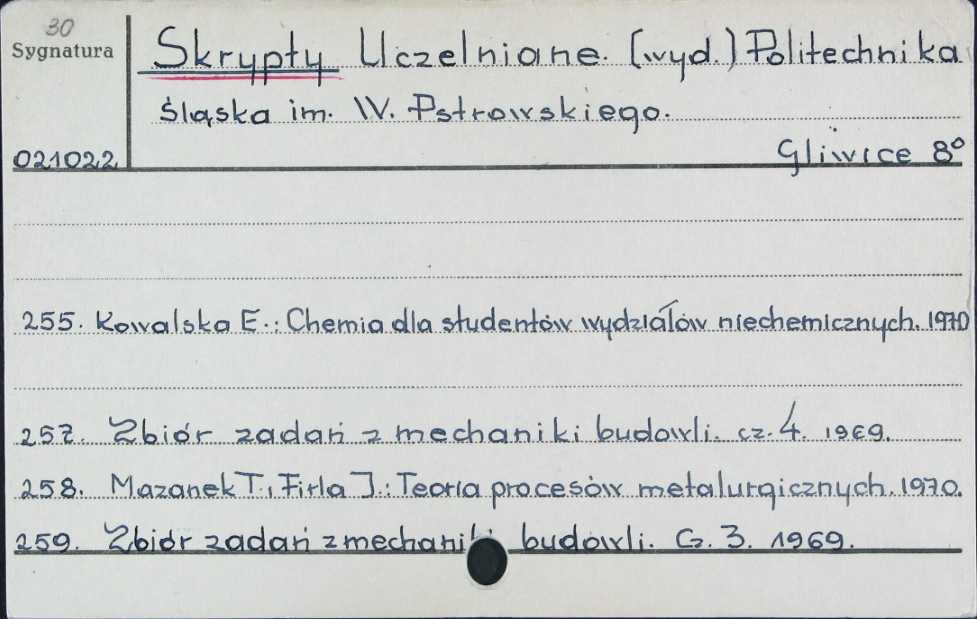 30
Sygnatura
Skrypty Uczelniane. (wyd.) Politechnika
Śląska im. W. Pstrowskiego.
021022
Gliwice 8°
255. Kowalska E.: Chemia dla studentów wydziałów niechemicznych. 1970
257. Zbiór zadań z mechaniki budowli. cz. 4. 1969.
258. Mazanek T., Firla J.: Teoria procesów metalurgicznych. 1970.
259. Zbiór zadań z mechaniki budowli. Cz. 3. 1969.